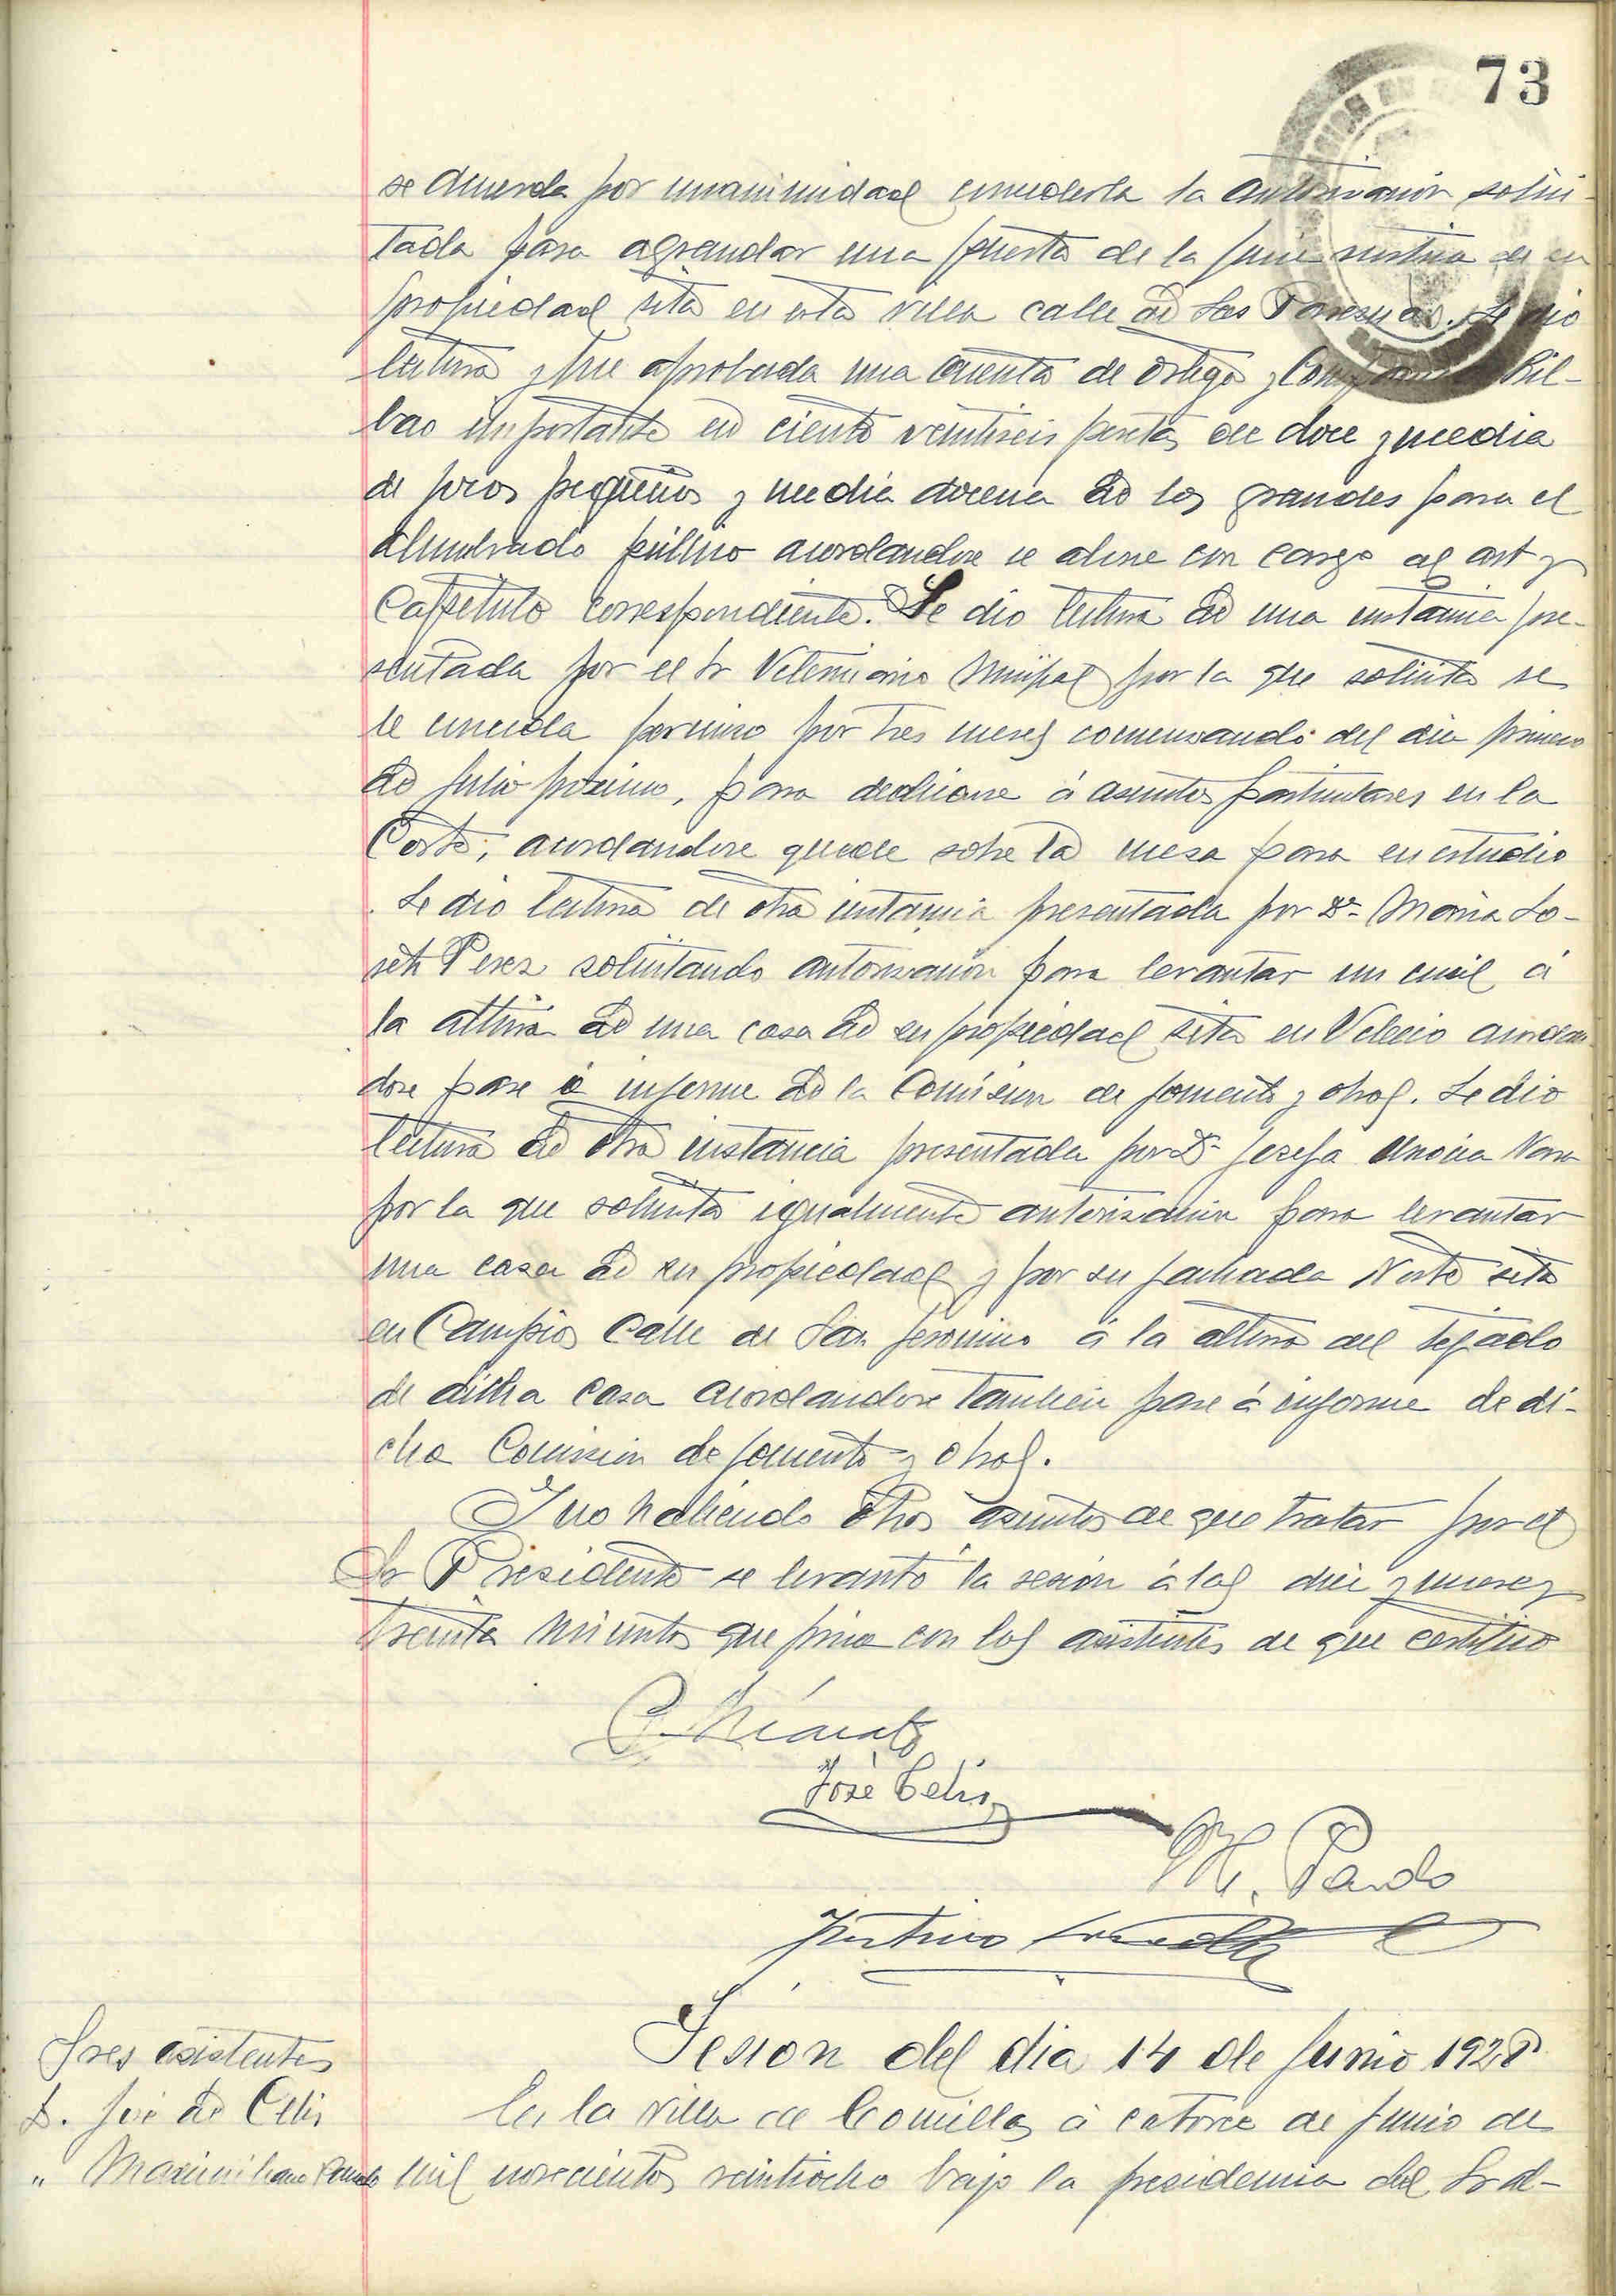 73
se acuerda por unanimidad concederla la autorizacion solici-
tada para agrandar una puerta de la finca de su
propiedad sita en esta villa calle de las Se dio
lectura y fue aprobada una cuenta de Ortega y Compañia Bil-
bao importante en ciento veintiseis pesetas de doce y media
de focos pequeños y media docena de los grandes para el
alumbrado público acordandose se abone con cargo al art y
Capitulo correspondiente. Se dio lectura de una instancia pre-
sentada por el Sr Veterinario Munpal por la que solicita se
le conceda permiso por tres meses comenzando del dia primero
de Julio proximo, para dedicarse á asuntos particulares en la
Corte, acordandose quede sobre la mesa para su estudio
. Se dio lectura de otra instancia presentada por Dª Maria
Perez solicitando autorizacion para levantar un á
la altura de una casa de su propiedad sita en Velecio acordan-
dose pase á informe de la Comision de fomento y obras. Se dio
lectura de otra instancia presentada por Dª Josefa
por la que solicita igualmente autorizacion para levantar
una casa de su propiedad y por su fachada Norte sita
en Campios Calle de San Jeronimo á la altura del tejado
de dicha casa acordandose tambien pase á informe de di-
cha Comision de fomento y obras.
Y no habiendo otros asuntos de que tratar por el
Sr Presidente se levantó la sesion á las diez y nueve y
treinta minutos que firma con los asistentes de que certifico
José Celis
M. Pardo
Sesion del dia 14 de Junio 1928
Sres asistentes
D. José de Celis
" Maximiliano Pardo
En la villa de Comillas á catorce de Junio de
mil novecientos veintiocho bajo la presidencia del Sr al-